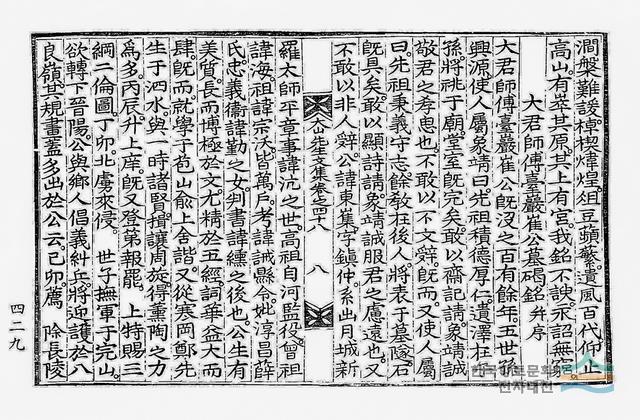 澗盤難諼棹楔煒煌俎豆蘋蘩遺風百代仰止
高山有菶其原其上有宮我銘不諛永詔無窮
大君師傅臺巖崔公墓碣銘并序
大君師傅臺巖崔公旣沒之百有餘年五世孫
興源使人屬象靖曰先祖積德厚仁遺澤在
孫將祧于廟堂室旣完矣敢以齋記請象靖誠
敬君之孝思也不敢以不文辭旣而又使人屬
曰先祖秉義守志餘敎在後人將表于墓隧石
旣具矣敢以顯詩請象靖誠服君之慮遠也又
不敢以非人辭公諱東㠍字鎭仲系出月城新
大山先生文集卷之四十八 八
羅太師平章事諱沆之世高祖自河監役曾祖
諱海祖諱宗沃皆萬戶考諱誡縣令妣淳昌薛
氏忠義衛諱勤之女判書諱纁之後也公生有
美質長而博極於文尤精於五經詞華益大而
肆旣而就學于苞山兪上舍諧又從寒岡鄭先
生于泗水與一時諸賢揖讓周旋得薰陶之力
爲多丙辰升上庠旣又登第報罷 上特賜三
綱二倫圖丁卯北虜來侵 世子撫軍于完山
欲轉下晉陽公與鄕人倡義糾兵將迎護於八
良嶺其規畫蓋多出於公云己卯薦 除長陵
四二九
전자대전